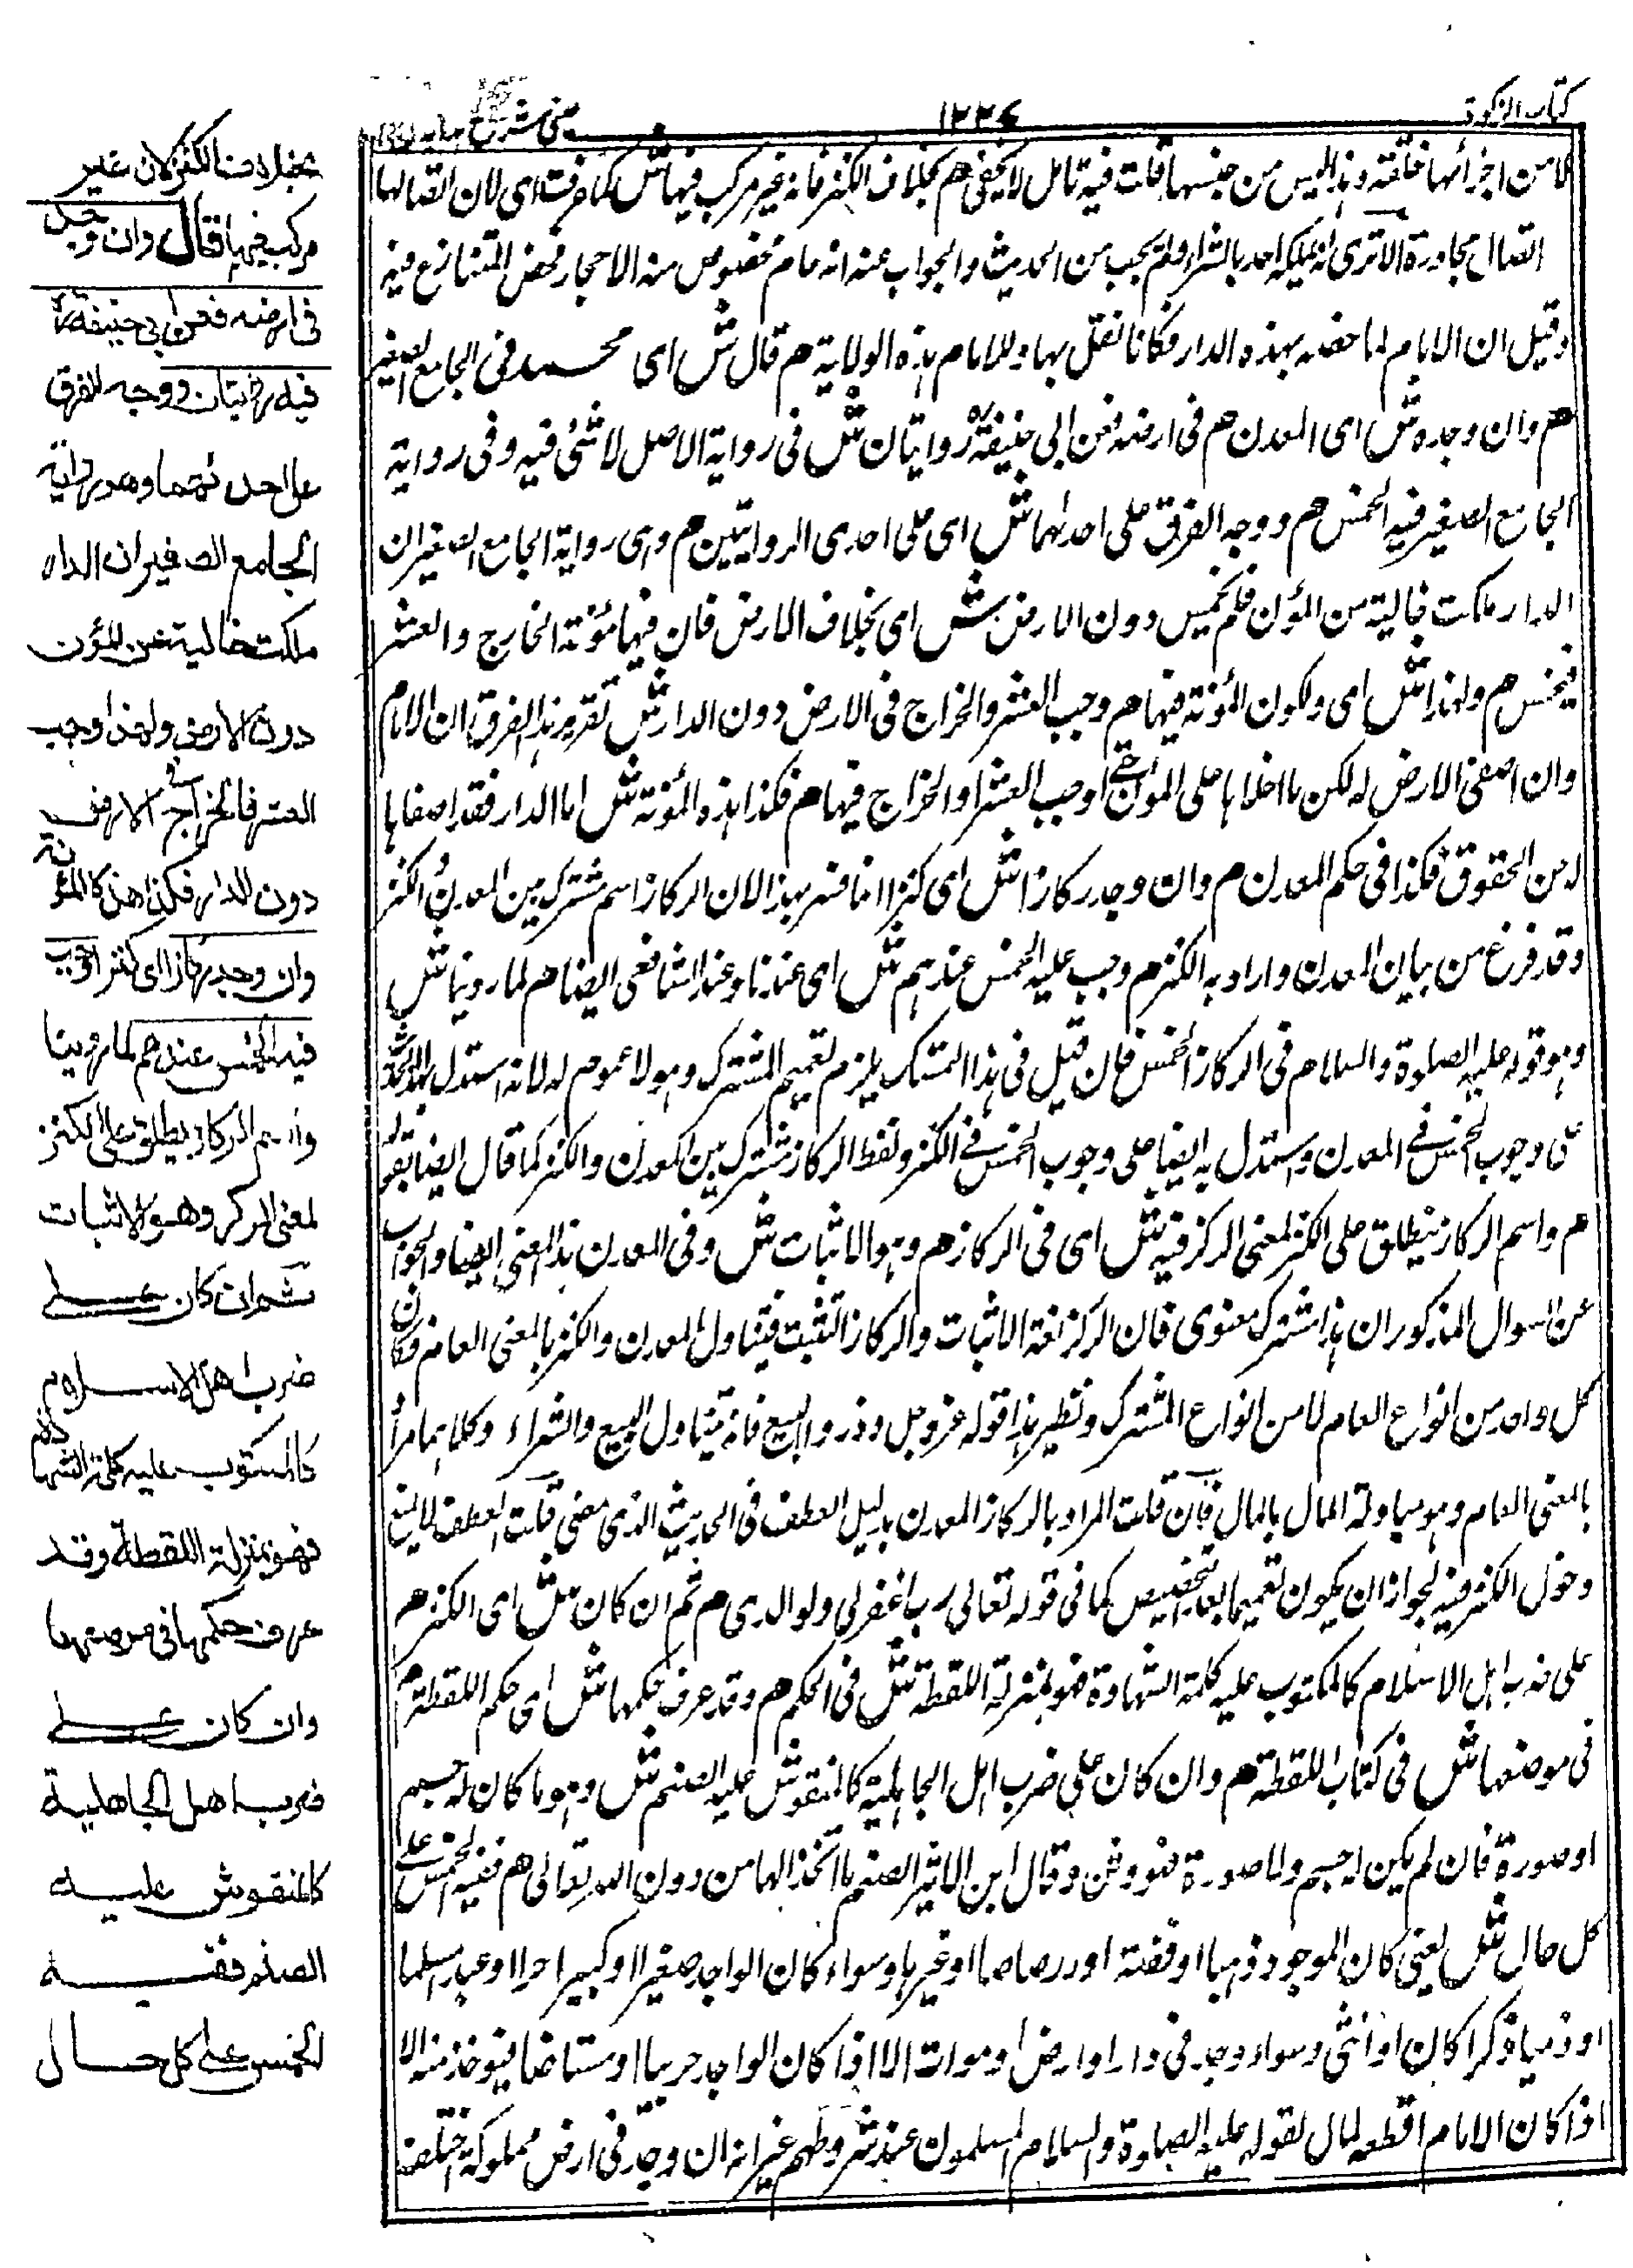 كتاب الزكوة
١٢٣٤
عينى شرح هدايه
لا من اجزائها خلقة وهذا ليس من جنسها قلت فيه تامل لا يخفى هم بخلاف الكنز فانه غير مركب فيها ش كما عرفت اى لان اتصالها
اتصال مجاورة الا ترى انه يملكه احد بالشراء ولم يجب من الحديث والجواب عنه انه عام مخصوص منه الاحجار فخص المتنازع فيه
وقيل ان الامام لما خصه بهذه الدار فكانا نفل بها وللامام هذه الولاية هم قال ش اى محمد فى الجامع الصغير
هم وان وجده ش اى المعدن هم فى ارضه فعن ابى حنيفة روايتان ش فى رواية الاصل لا شئ فيه وفى رواية
الجامع الصغير فيه الخمس هم ووجه الفرق على احدهما ش اى على احدى الروايتين هم وهى رواية الجامع الصغير ان
الدار ملكت خالية من المؤن فلم تخمس دون الارض ش اى بخلاف الارض فان فيها مؤنة الخراج والعشر
فيخمس هم ولهذا ش اى ولكون المؤنة فيها هم وجب العشر والخراج فى الارض دون الدار ش تقرير هذا الفرق ان الامام
وان اصفى الارض له لكن ما اخلاها على المؤن حتى اوجب العشر او الخراج فيها هم فكذا هذه المؤنة ش اما الدار فقد اصفاها
له من الحقوق فكذا فى حكم المعدن م وان وجد ركازا ش اى كنزا انما فسر بهذا لان الركاز اسم مشترك بين المعدن والكنز
وقد فرغ من بيان المعدن واراد به الكنز م وجب عليه الخمس عندهم ش اى عندنا وعند الشافعى ايضا هم لما روينا ش
وهو قوله عليه الصلوة والسلام فى الركاز الخمس فان قيل فى هذا التمسك يلزم تعميم المشترك وهو لا عموم له لانه استدل بهذا الحديث
على وجوب الخمس فى المعدن واستدل به ايضا على وجوب الخمس فى الكنز ولفظ الركاز مشترك بين المعدن والكنز كما قال ايضا بقوله
هم واسم الركاز ينطلق على الكنز لمعنى الركز فيه ش اى فى الركاز هم وهو الاثبات ش وفى المعدن هذا المعنى ايضا والجواب
عن السوال المذكور ان هذا مشترك معنوى فان الركز لغة الاثبات والركاز المثبت فيتناول المعدن والكنز بالمعنى العام فكان
كل واحد من انواع العام لا من انواع المشترك ونظير هذا قوله عز وجل وذروا البيع فانه يتناول البيع والشراء وكلاهما مراد
بالمعنى العام وهو مبادلة المال بالمال فان قلت المراد بالركاز المعدن بدليل العطف فى الحديث الذى مضى قلت العطف لا يمنع
دخول الكنز فيه لجواز ان يكون تعميما بعد تخصيص كما فى قوله تعالى رب اغفر لى ولوالدى م ثم ان كان ش اى الكنز هم
على ضرب اهل الاسلام كالمكتوب عليه كلمة الشهادة فهو بمنزلة اللقطة ش فى الحكم هم وقد عرف حكمها ش اى حكم اللقطة م
فى موضعها ش فى كتاب اللقطة هم وان كان على ضرب اهل الجاهلية كالمنقوش عليه الصنم ش وهو ما كان له جسم
او صورة فان لم يكن له جسم ولا صورة فهو وثن وقال ابن الاثير الصنم ما اتخذ الها من دون الله تعالى هم ففيه الخمس على
كل حال ش يعنى كان الموجود ذهبا او فضة او رصاصا او غيرها وسواء كان الواجد صغيرا او كبيرا حرا او عبدا مسلما
او ذميا ذكرا كان او انثى وسواء وجد فى دار او ارض او موات الا اذا كان الواجد حربيا او مستامنا فيوخذ منه الا
اذا كان الامام اقطعه لمال لقوله عليه الصلوة والسلام المسلمون عند شروطهم غير انه ان وجد فى ارض مملوكة اختلف
بخلاف الكنز لانه غير
مركب فيها قال وان وجد
فى ارضه فعن ابى حنيفة
فيه روايتان ووجه الفرق
على احدهما وهو رواية
الجامع الصغير ان الدار
ملكت خالية عن المؤن
دون الارض ولهذا وجب
العشر والخراج فى الارض
دون الدار فكذا هذه المؤنة
وان وجد ركازا اى كنزا وجب
فيه الخمس عندهم لما روينا
واسم الركاز يطلق على الكنز
لمعنى الركز وهو الاثبات
ثم ان كان على
ضرب اهل الاسلام
كالمكتوب عليه كلمة الشهادة
فهو بمنزلة اللقطة وقد
عرف حكمها فى موضعها
وان كان على
ضرب اهل الجاهلية
كالمنقوش عليه
الصنم ففيه
الخمس على كل حال